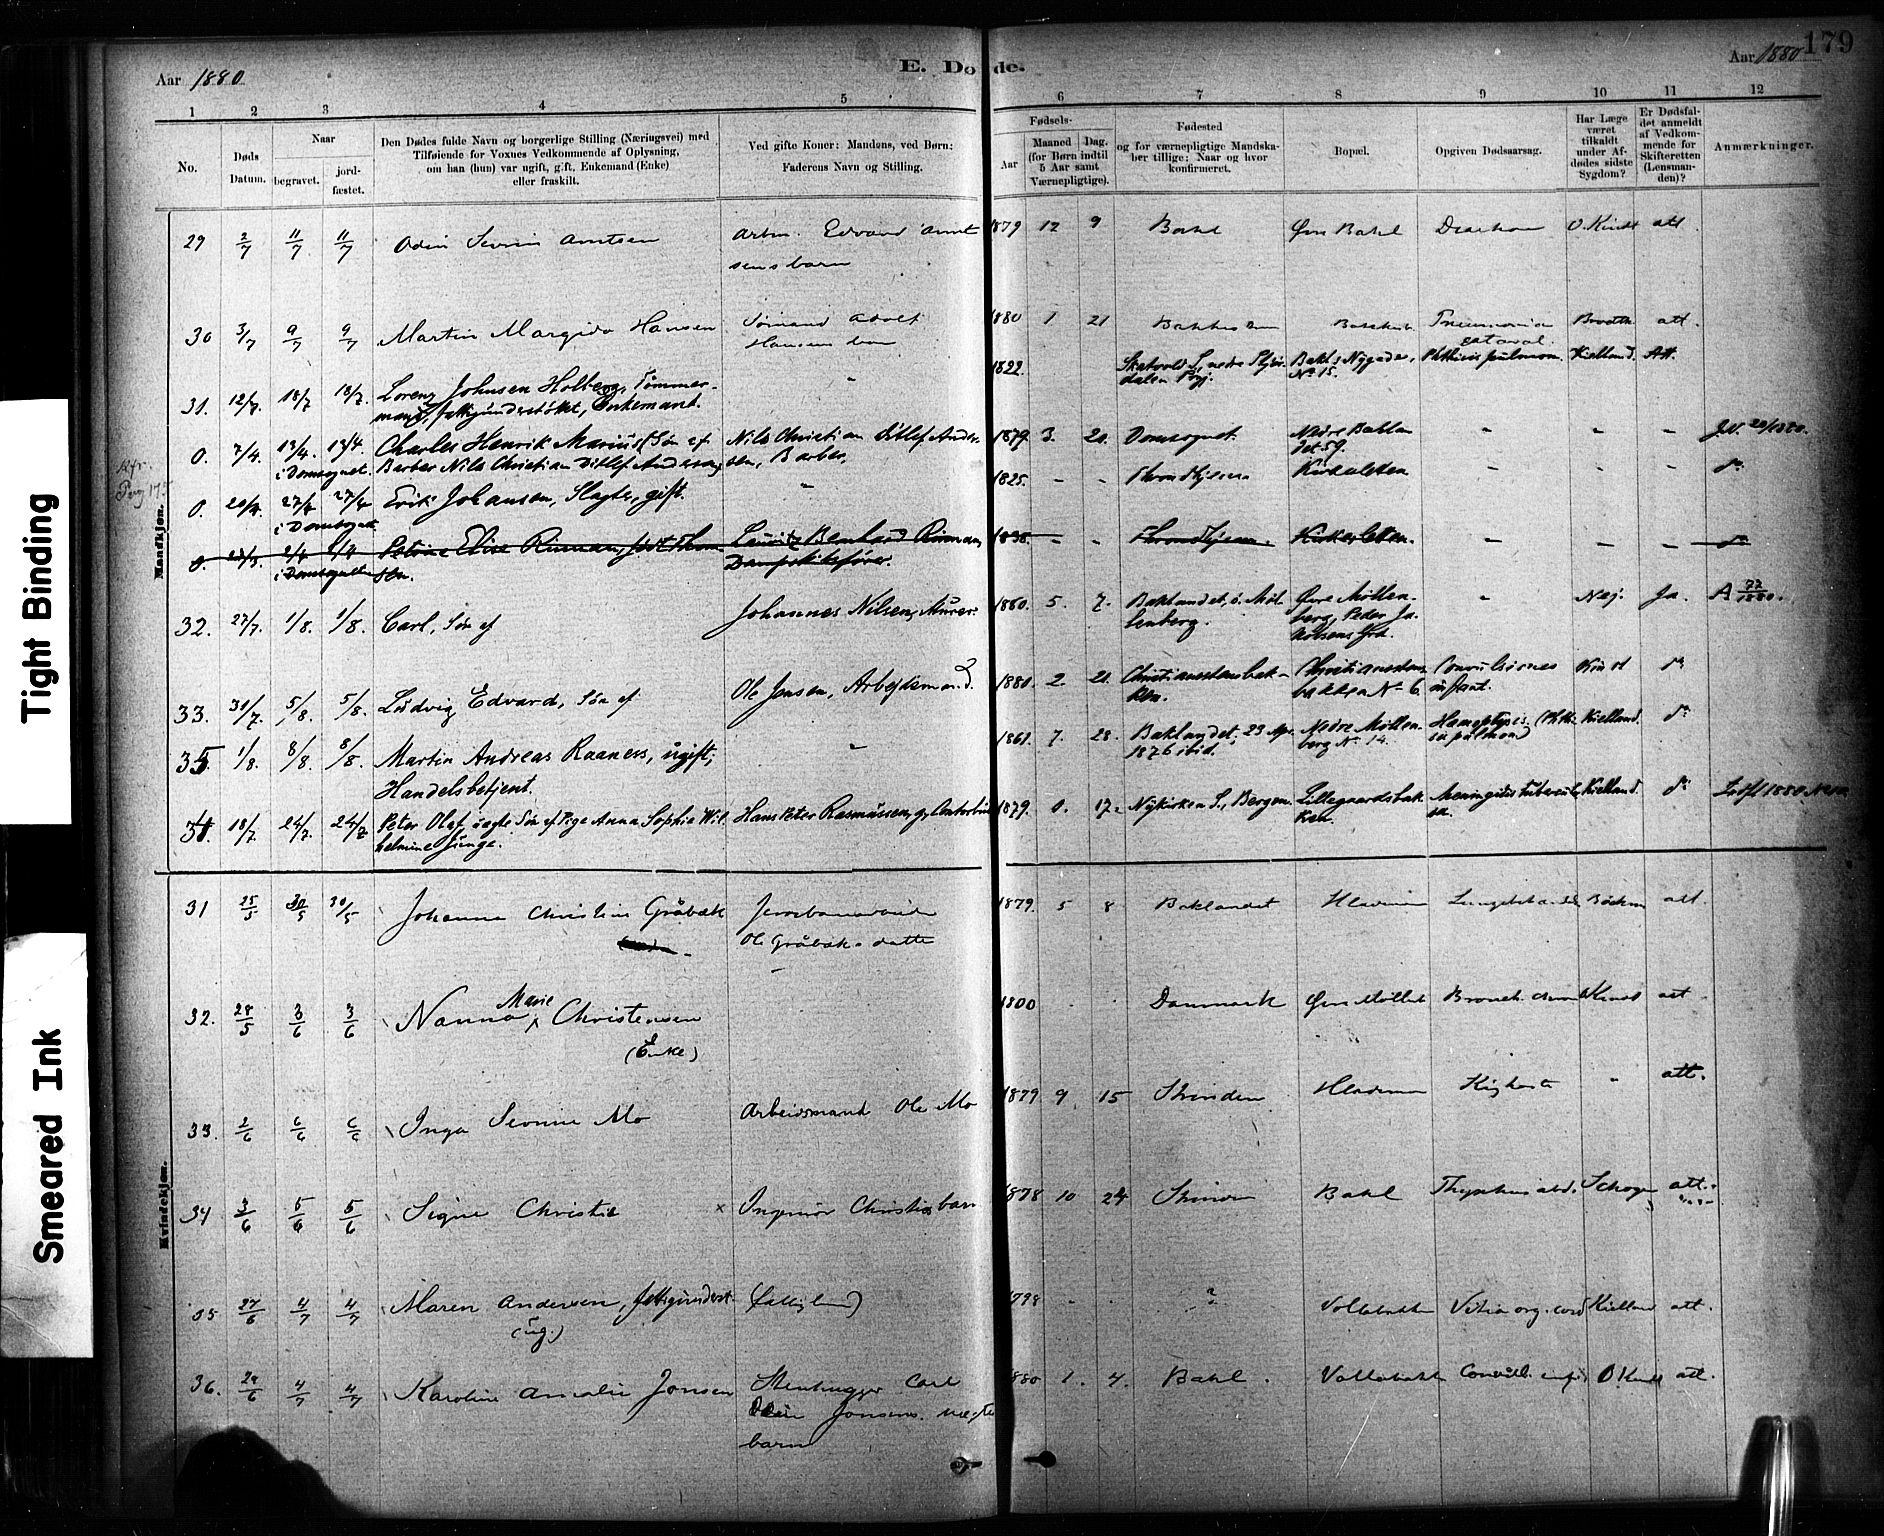 179
Aar 1880
E. Dø de.
Aar 1880
1 2 3 4 5 6 7 8 9 10 11 12
No.
Døds Datum.
Naar
begravet.
jord-
fæstet.
Den Dødes fulde Navn og borgerlige Stilling (Næringsvei) med
Tilføiende for Voxnes Vedkommende af Oplysning,
om han (hun) var ugift, gift, Enkemand (Enke)
eller fraskilt.
Ved gifte Koner: Mandens, ved Børn:
Faderens Navn og Stilling.
Fødsels-
Aar
Maaned Dag.
(for Børn indtil
5 Aar samt
Værnepligtige).
Fødested
og for værnepligtige Mandska-
ber tillige: Naar og hvor
konfirmeret.
Bopæl.
Opgiven Dødsaarsag.
Har Læge
været
tilkaldt
under Af-
dødes sidste
Sygdom?
Er Dødsfal-
det anmeldt
af Vedkom-
mende for
Skifteretten
(Lensman-
den)?
Anmærkninger.
Mandkjøn.
29 2/7 11/7 11/7 Odin Severin Arntsen Arbm. Edvard Arnt 1879 12 9 Bakl Øvr Bakl O. Kindt att.
sens barn
30 3/7 9/7 9/7 Martin Margido Hansen Sømand Adolf 1880 1 21 Pneumonia att.
Hansens barn cataral.
31. 12/7. 18/7 18/7. Lorenz Johnsen Holberg, Tømmer- " 1822. Bakl: Nygade, Phthisis pulmon. Kielland. Att.
mand, fattigunderstøttet, Enkemand. dalen Prgj. No 15.
0. 7/4. 13/4. 13/4. Charles Henrik Marius, Søn af Nils Christian Ditlef Ander- 1879. 3. 20. Domsognet. Nedre Baklan - - - J.V. 20/1880.
i Domsognet. Barber Nils Christian Ditlef Andersen, sen, Barber. det 59.
0. 20/4. 27/4 27/4 Erik Johansen, Slagter, gift. " 1825. - - Throndhjem Kirkesletten - - - do
i Domsognet
0. 2/4 Petrine Elise Rinman, født Thom- Lauritz Bernhard Rinman, 1838 - - Throndhjem. Kirkesletten. - - - do
i Domsognet sen. Dampskibsfører.
32. 27/7. 1/8. 1/8. Carl, Søn af Johannes Nilsen, Murer. 1880. 5. 7. Baklandet, ø. Møl- Øvre Møllen- - Nej. Ja. A 72/1880.
lenberg. berg, Peder Ja-
kobsens Grd.
33. 31/7. 5/8. 5/8. Ludvig Edvard, Søn af Ole Jensen, Arbejdsmand. 1880. 2. 21. Christiansstensbak- Christianstens Convulsiones Kindt do
ken. bakken No 6. infant.
35 1/8. 8/8. 8/8. Martin Andreas Raaness, ugift, " 1861. 7. 28. Baklandet, 23 Apr. Nedre Møllen- Hæmoptysis. (Phthi- Kielland. do
Handelsbetjent. 1876 ibid. berg No 14. sis pulmon)
18/7 24/7. 24/7. Peter Olaf uægte Søn af Pige Anna Sophie Wil- Hans Peter Rasmussen, 1879. 0. 17. Nykirken S., Bergen. Lillegaardsbak- Meningitis tubercul- Kielland. do
helmine Junge. ken. sa.
Kvindekjøn.
31 25/5 30/5 30/5 Johanne Christine Gråbæk Jernbanearbeider 1879. 5 8 Baklandet Bødtker att.
Ole Gråbæk datter
32. 28/5 3/6 3/6 Nanna Marie Christensen 1800 Danmark Øvre Møllnb O Kindt att
(Enke)
33. 2/6 6/6 6/6 Inga Severine Mo Arbeidsmand Ole Mo 1879 9 15 Strinden Kighoste " att.
34 3/6 5/6 5/6 Signe Christie × Ingeniør Christies barn 1878 10 24 Strinden Bakl Typhus abd. att.
35 27/6 4/7 4/7 Maren Andersen, fattigunderst. (fattiglem) 1798 ? Vollabakken Vitia org. cord Kielland att.
(ug.)
36. 29/6 4/7 4/7 Karoline Amalie Jonsen Stenhugger Carl 1880 1. 4. Bakl. Vollabakken Convuls. inf. O Kindt att.
Odin Jonsens uægte
barn
Tight Binding
Smeared Ink